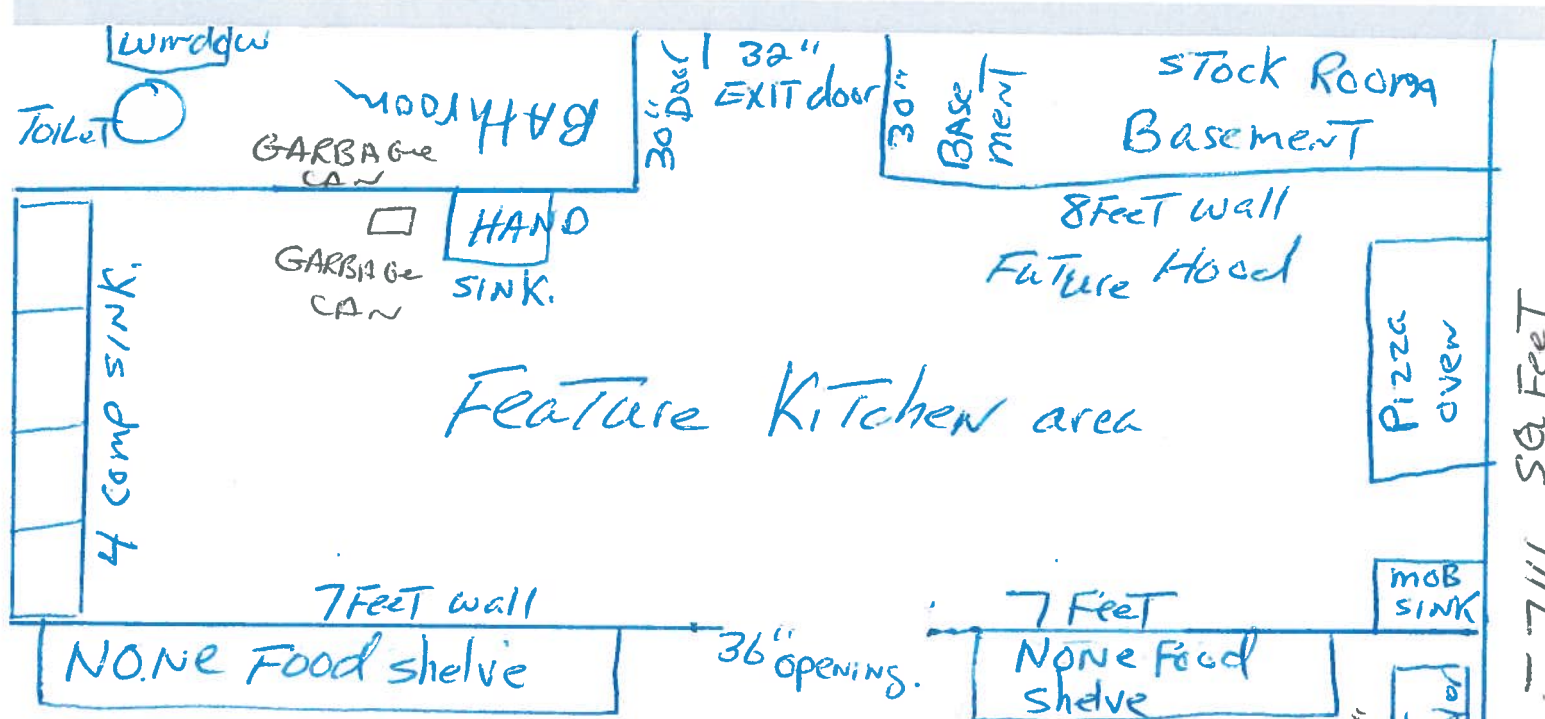 window
TOILET
BATHroom
GARBAGE
CAN
30" Door
32"
EXIT door
30"
BASE
MENT
STOCK ROOM
BasemenT
HAND
SINK.
GARBAGE
CAN
8FeeT wall
FuTure Hood
4 Comp SINK.
FeaTure KiTchen area
Pizza
oven
SQ FeeT
7FeeT wall
7 FeeT
moB
SINK
NO.Ne Food shelve
36" opening.
NONe Food
Shelve